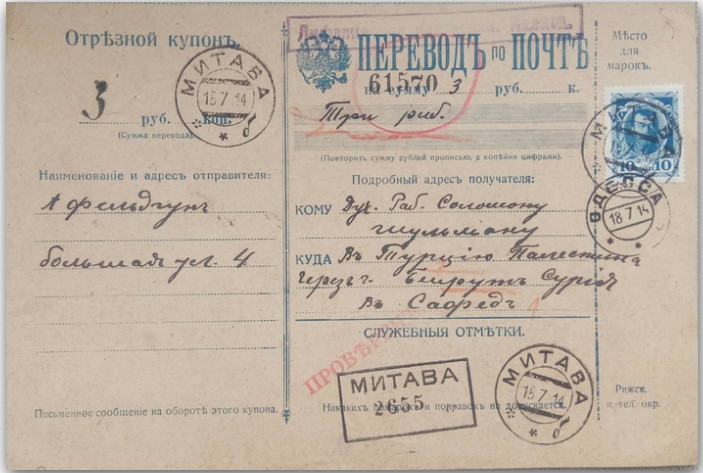 Отрѣзной купонъ.
3 руб. коп.
(Сумма перевода).
МИТАВА
15 7 14
* * б
Наименованіе и адресъ отправителя:
А Фельдгунъ
большая ул. 4
Письменное сообщеніе на оборотѣ этого купона.
ПЕРЕВОДЪ по ПОЧТѢ
61570
на сумму 3 руб. к.
Три руб.
(Повторить сумму рублей прописью, а копѣйки цифрами).
Подробный адресъ получателя:
КОМУ Дух. Раб. Соломону
Шульману
КУДА Въ Турцію Палестина
черезъ г. Бейрутъ Сурія
Въ Сафедъ
СЛУЖЕБНЫЯ ОТМѢТКИ.
МИТАВА
2655
Никакихъ и поправокъ не допускается.
МИТАВА
15 7 14
* б
Мѣсто
для
марокъ.
10 10
МИТАВА
ОДЕССА
18 7 14
Рижск.
п.-тел. окр.